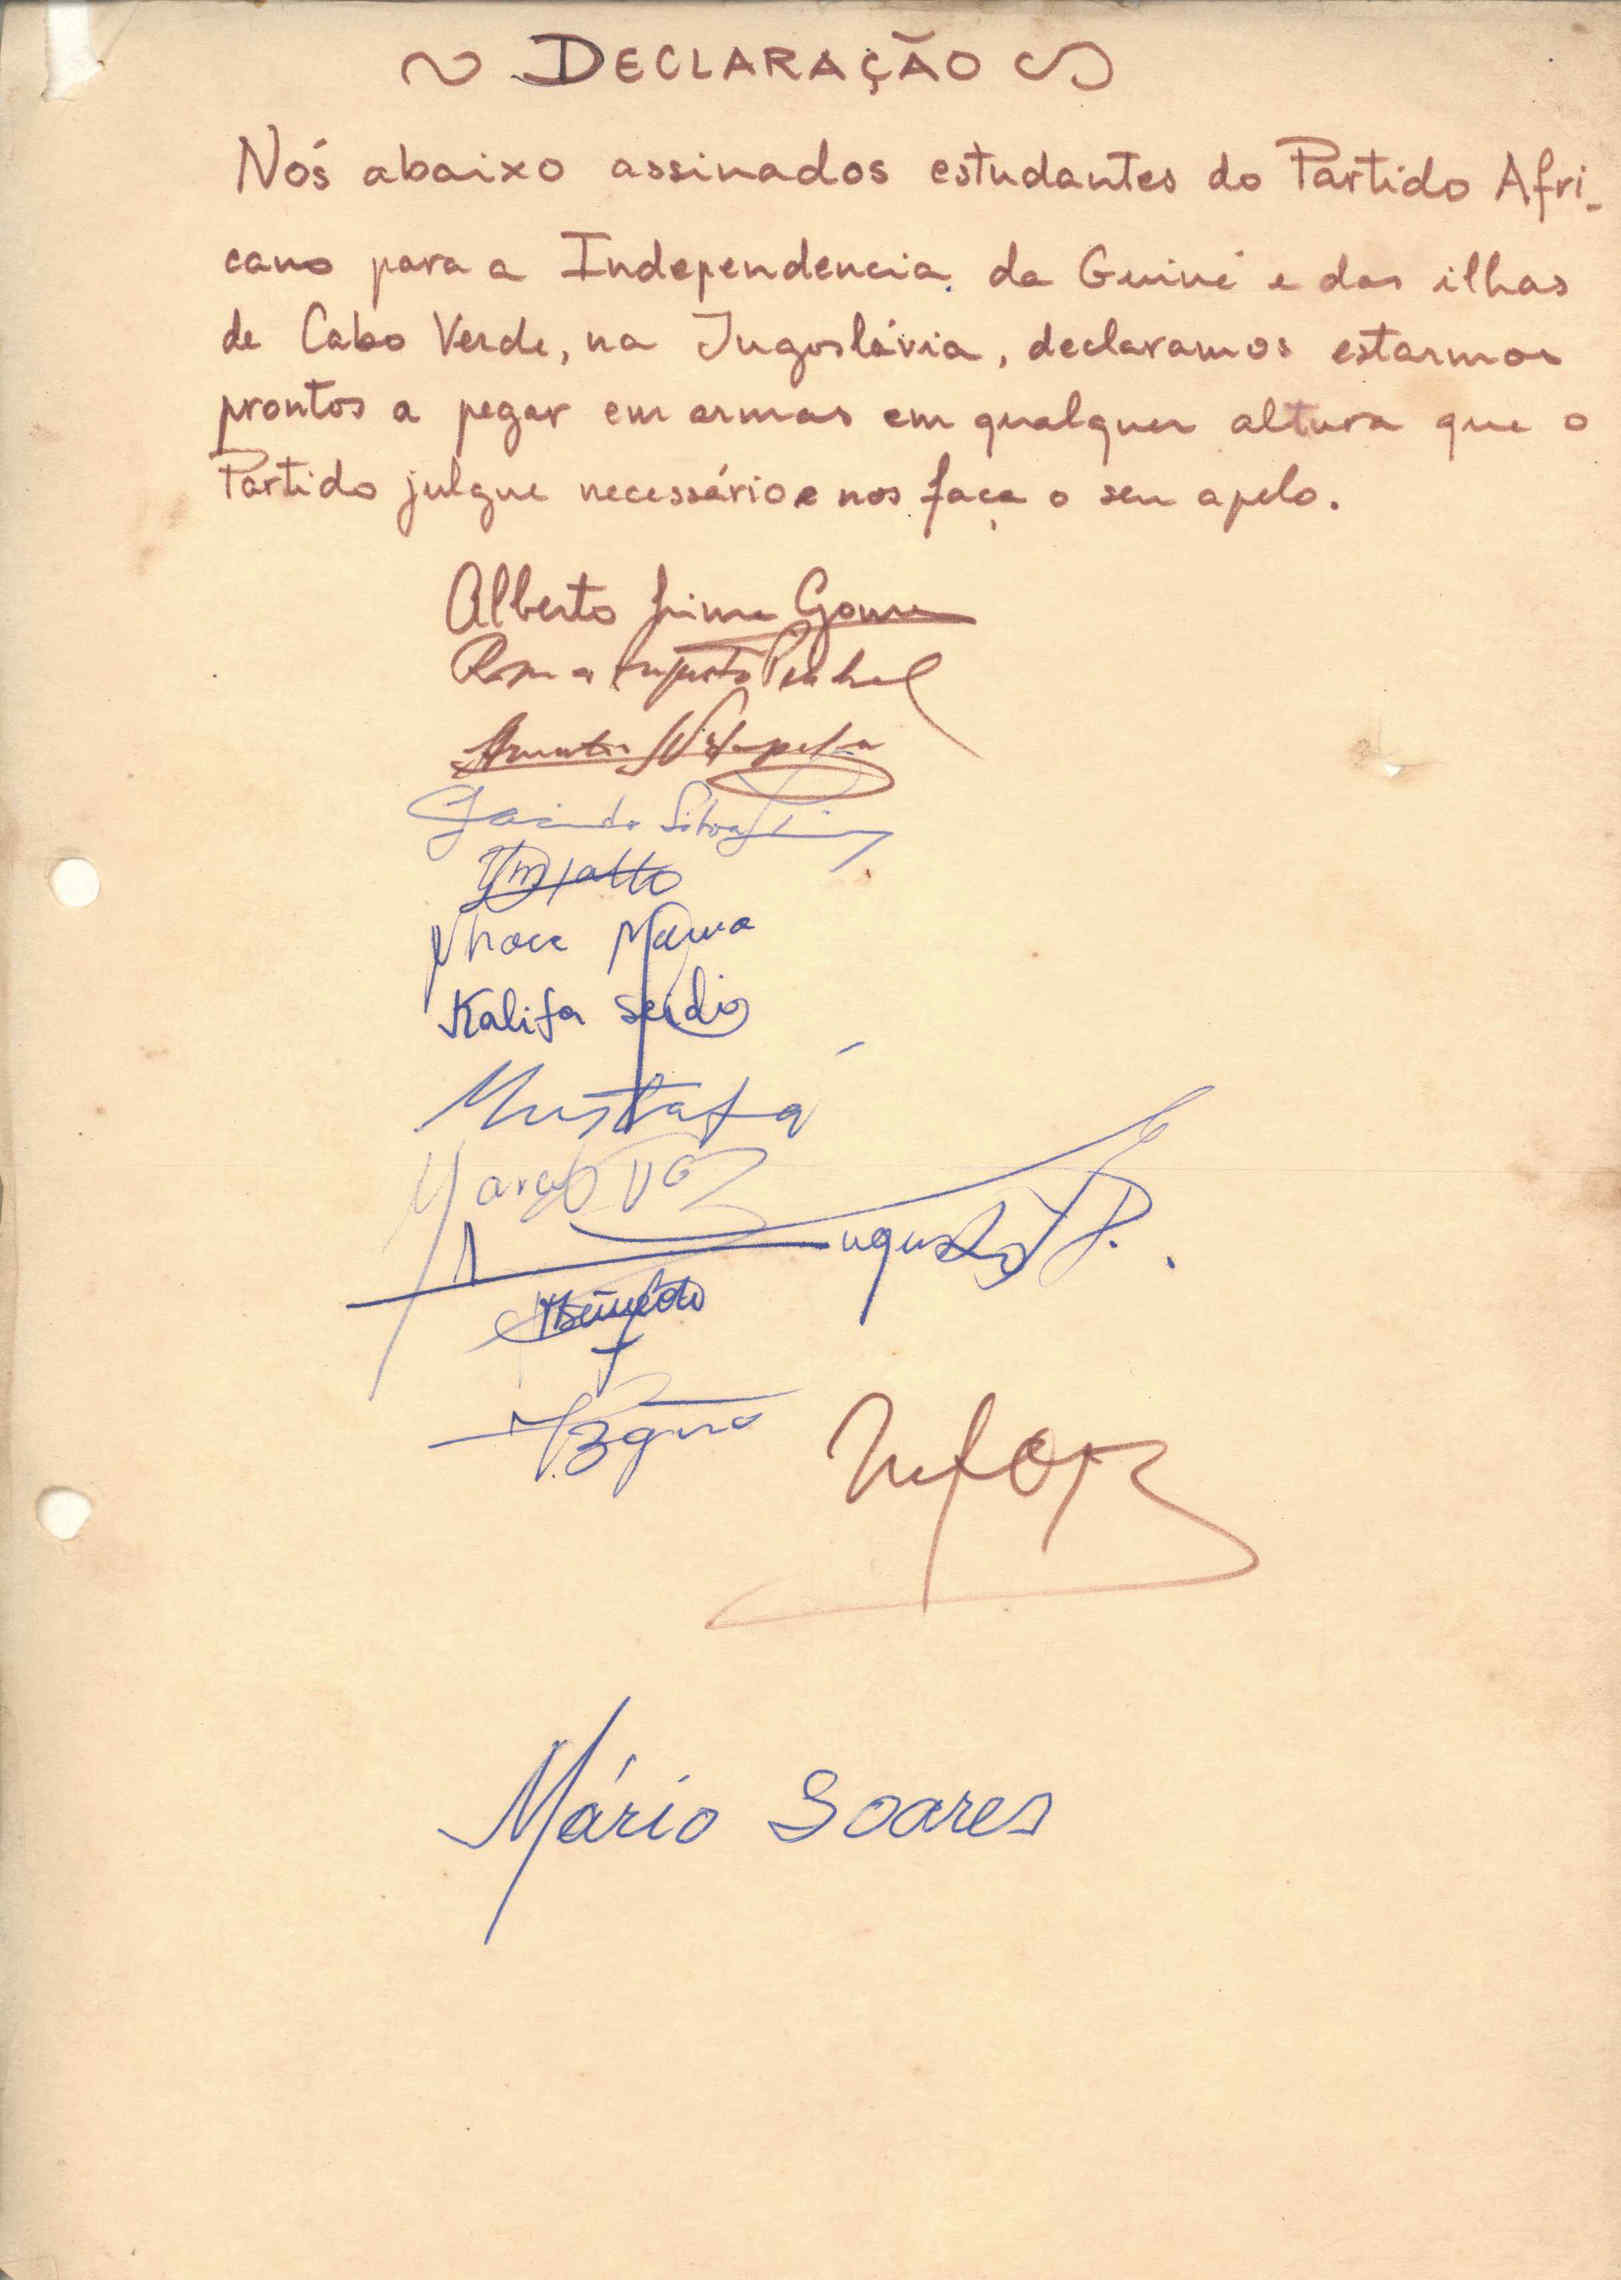 DECLARAÇÃO
Nós abaixo assinados estudantes do Partido Afri-
cano para a Independencia da Guiné e das ilhas
de Cabo Verde, na Jugoslávia, declaramos estarmos
prontos a pegar em armas em qualquer altura que o
Partido julgue necessário e nos faça o seu apelo.
Alberto Lima Gomes
Silva
Kalifa Seidi
Mustafá
Augusto P.
Mário Soares